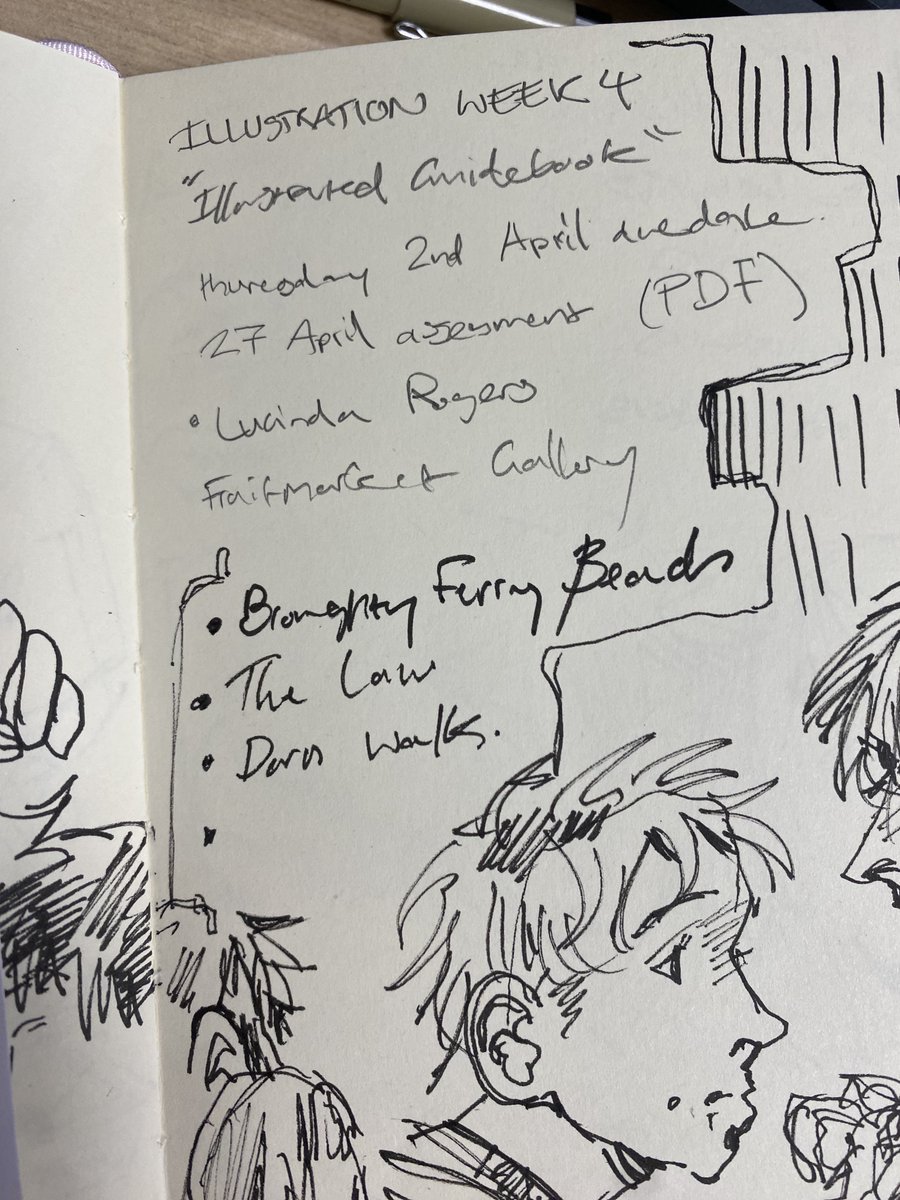 ILLUSTRATION WEEK 4
"Illustrated Guidebook"
thursday 2nd April duedate.
27 April assesment (PDF)
• Lucinda Rogers
Fruitmarket Gallery
• Broughty Ferry Beach
• The Law
• walks.
•